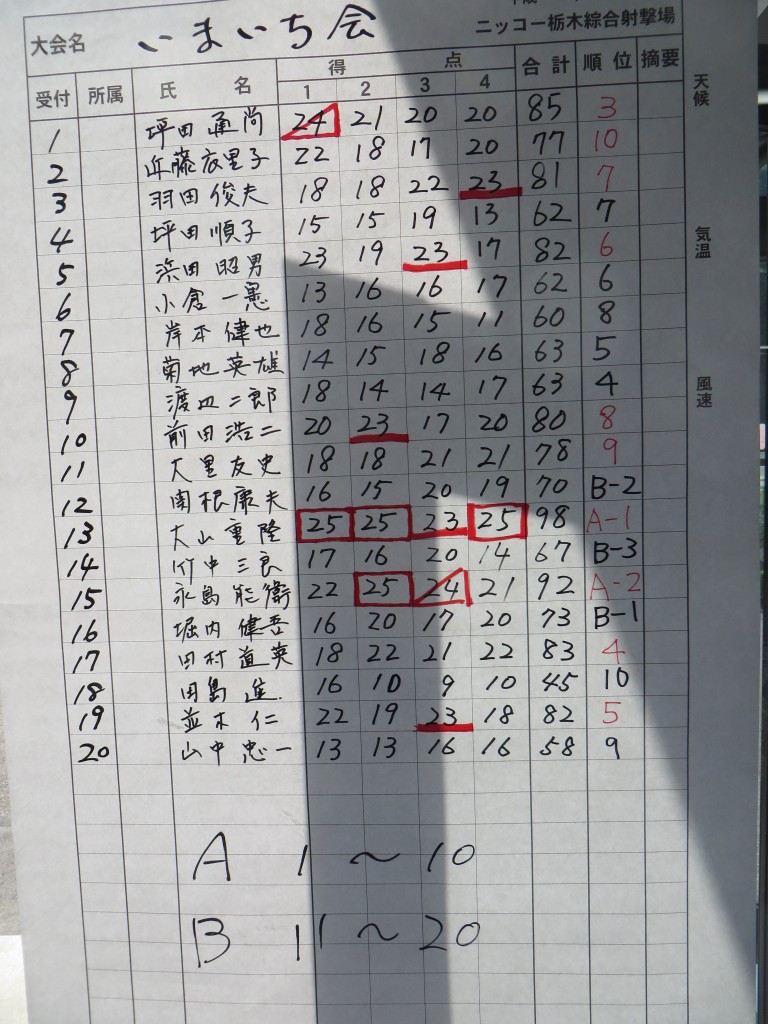 大会名 いまいち会 ニッコー栃木綜合射撃場
受付 所属 氏名 得点 1 2 3 4 合計 順位 摘要
天候
1 坪田 通尚 24 21 20 20 85 3
2 近藤友里子 22 18 17 20 77 10
3 羽田 俊夫 18 18 22 23 81 7
4 坪田 順子 15 15 19 13 62 7
気温
5 浜田 昭男 23 19 23 17 82 6
6 小倉 一 13 16 16 17 62 6
7 岸本 健也 18 16 15 11 60 8
8 菊地 英雄 14 15 18 16 63 5
9 渡辺 二郎 18 14 14 17 63 4
風速
10 前田 浩二 20 23 17 20 80 8
11 大里 友史 18 18 21 21 78 9
12 関根 康夫 16 15 20 19 70 B-2
13 大山 重隆 25 25 23 25 98 A-1
14 竹中 三良 17 16 20 14 67 B-3
15 永島 能衛 22 25 24 21 92 A-2
16 堀内 健吾 16 20 17 20 73 B-1
17 田村 直英 18 22 21 22 83 4
18 田島 進 16 10 9 10 45 10
19 並木 仁 22 19 23 18 82 5
20 山中 忠一 13 13 16 16 58 9
A 1 〜 10
B 11 〜 20